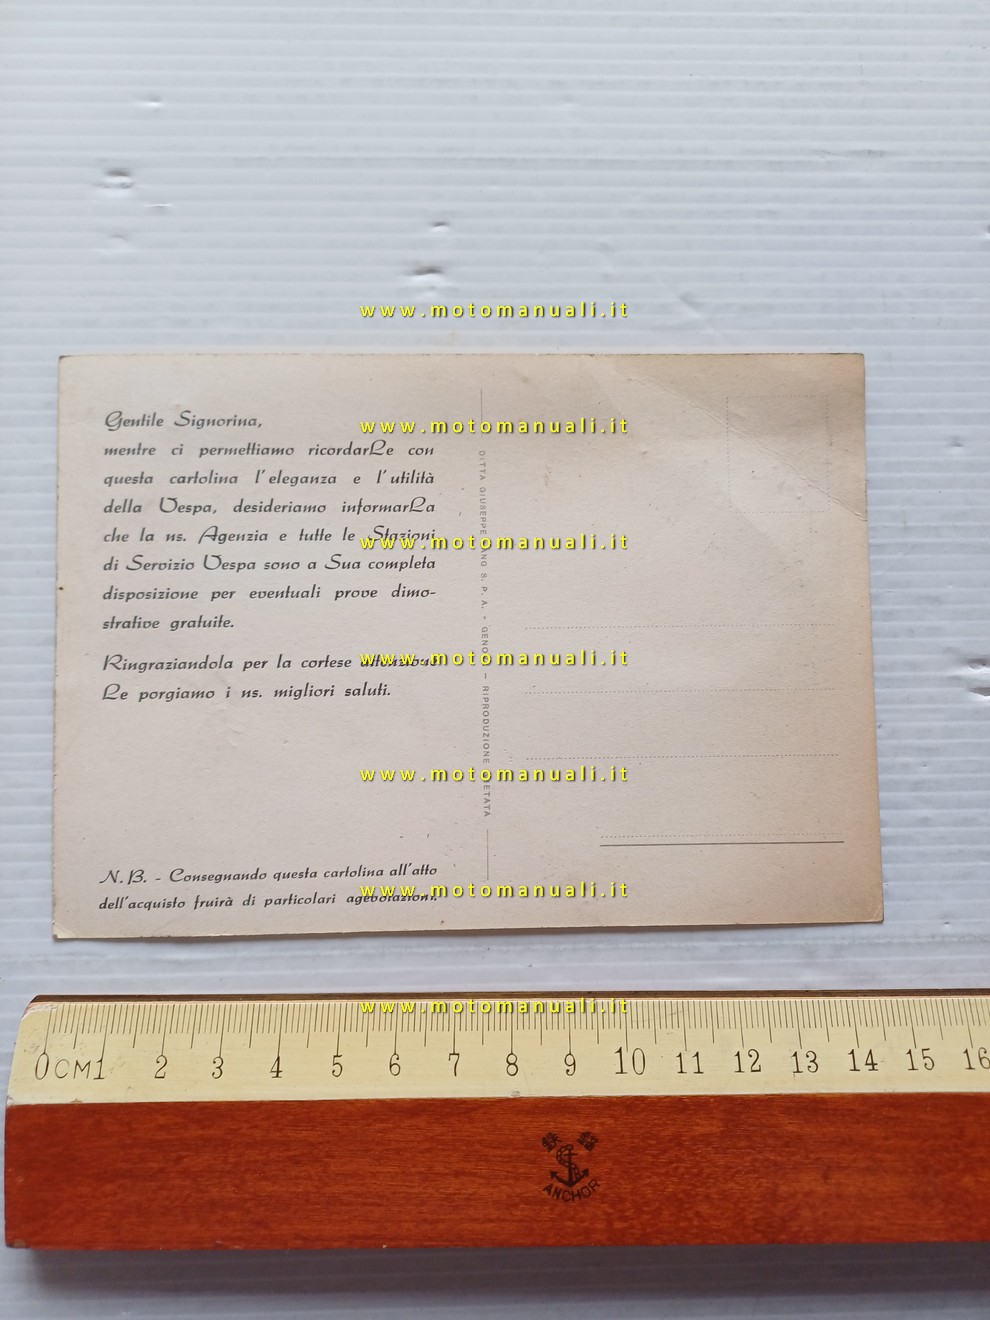 www.motomanuali.it
Gentile Signorina,
mentre ci permettiamo ricordarLe con
questa cartolina l'eleganza e l'utilità
della Vespa, desideriamo informarLa
che la ns. Agenzia e tutte le Stazioni
di Servizio Vespa sono a Sua completa
disposizione per eventuali prove dimo-
strative gratuite.
Ringraziandola per la cortese attenzione
Le porgiamo i ns. migliori saluti.
N.B. - Consegnando questa cartolina all'atto
dell'acquisto fruirà di particolari agevolazioni.
DITTA GIUSEPPE LANG S. P. A. - GENOVA — RIPRODUZIONE VIETATA
www.motomanuali.it
www.motomanuali.it
www.motomanuali.it
www.motomanuali.it
www.motomanuali.it
www.motomanuali.it
0CM1 2 3 4 5 6 7 8 9 10 11 12 13 14 15 16
ANCHOR